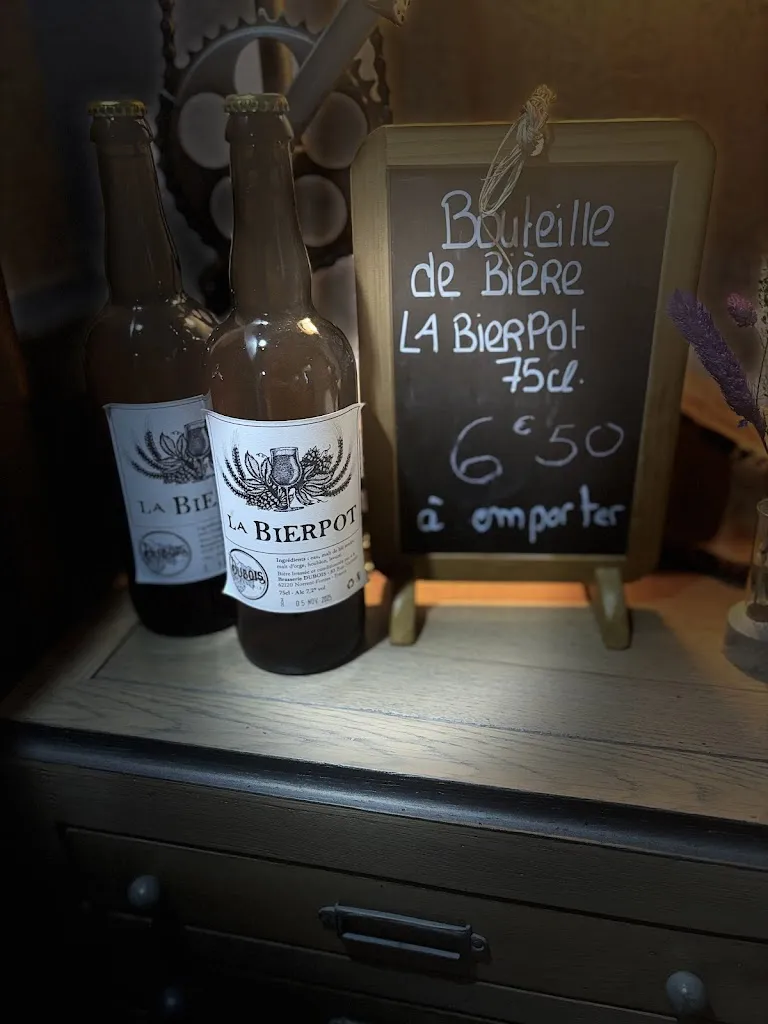 Bouteille
de Bière
LA BierPot
75cl.
6€50
à emporter
LA BIERPOT
DUBOIS
Ingrédients : eau, malt de blé
malt d'orge, houblon, levure
Bière brassée et
Brasserie DUBOIS
62120 Norrent-Fontes
75cl - Alc 7,2° vol.
05 NOV 2025
LA BIE
DUBOIS